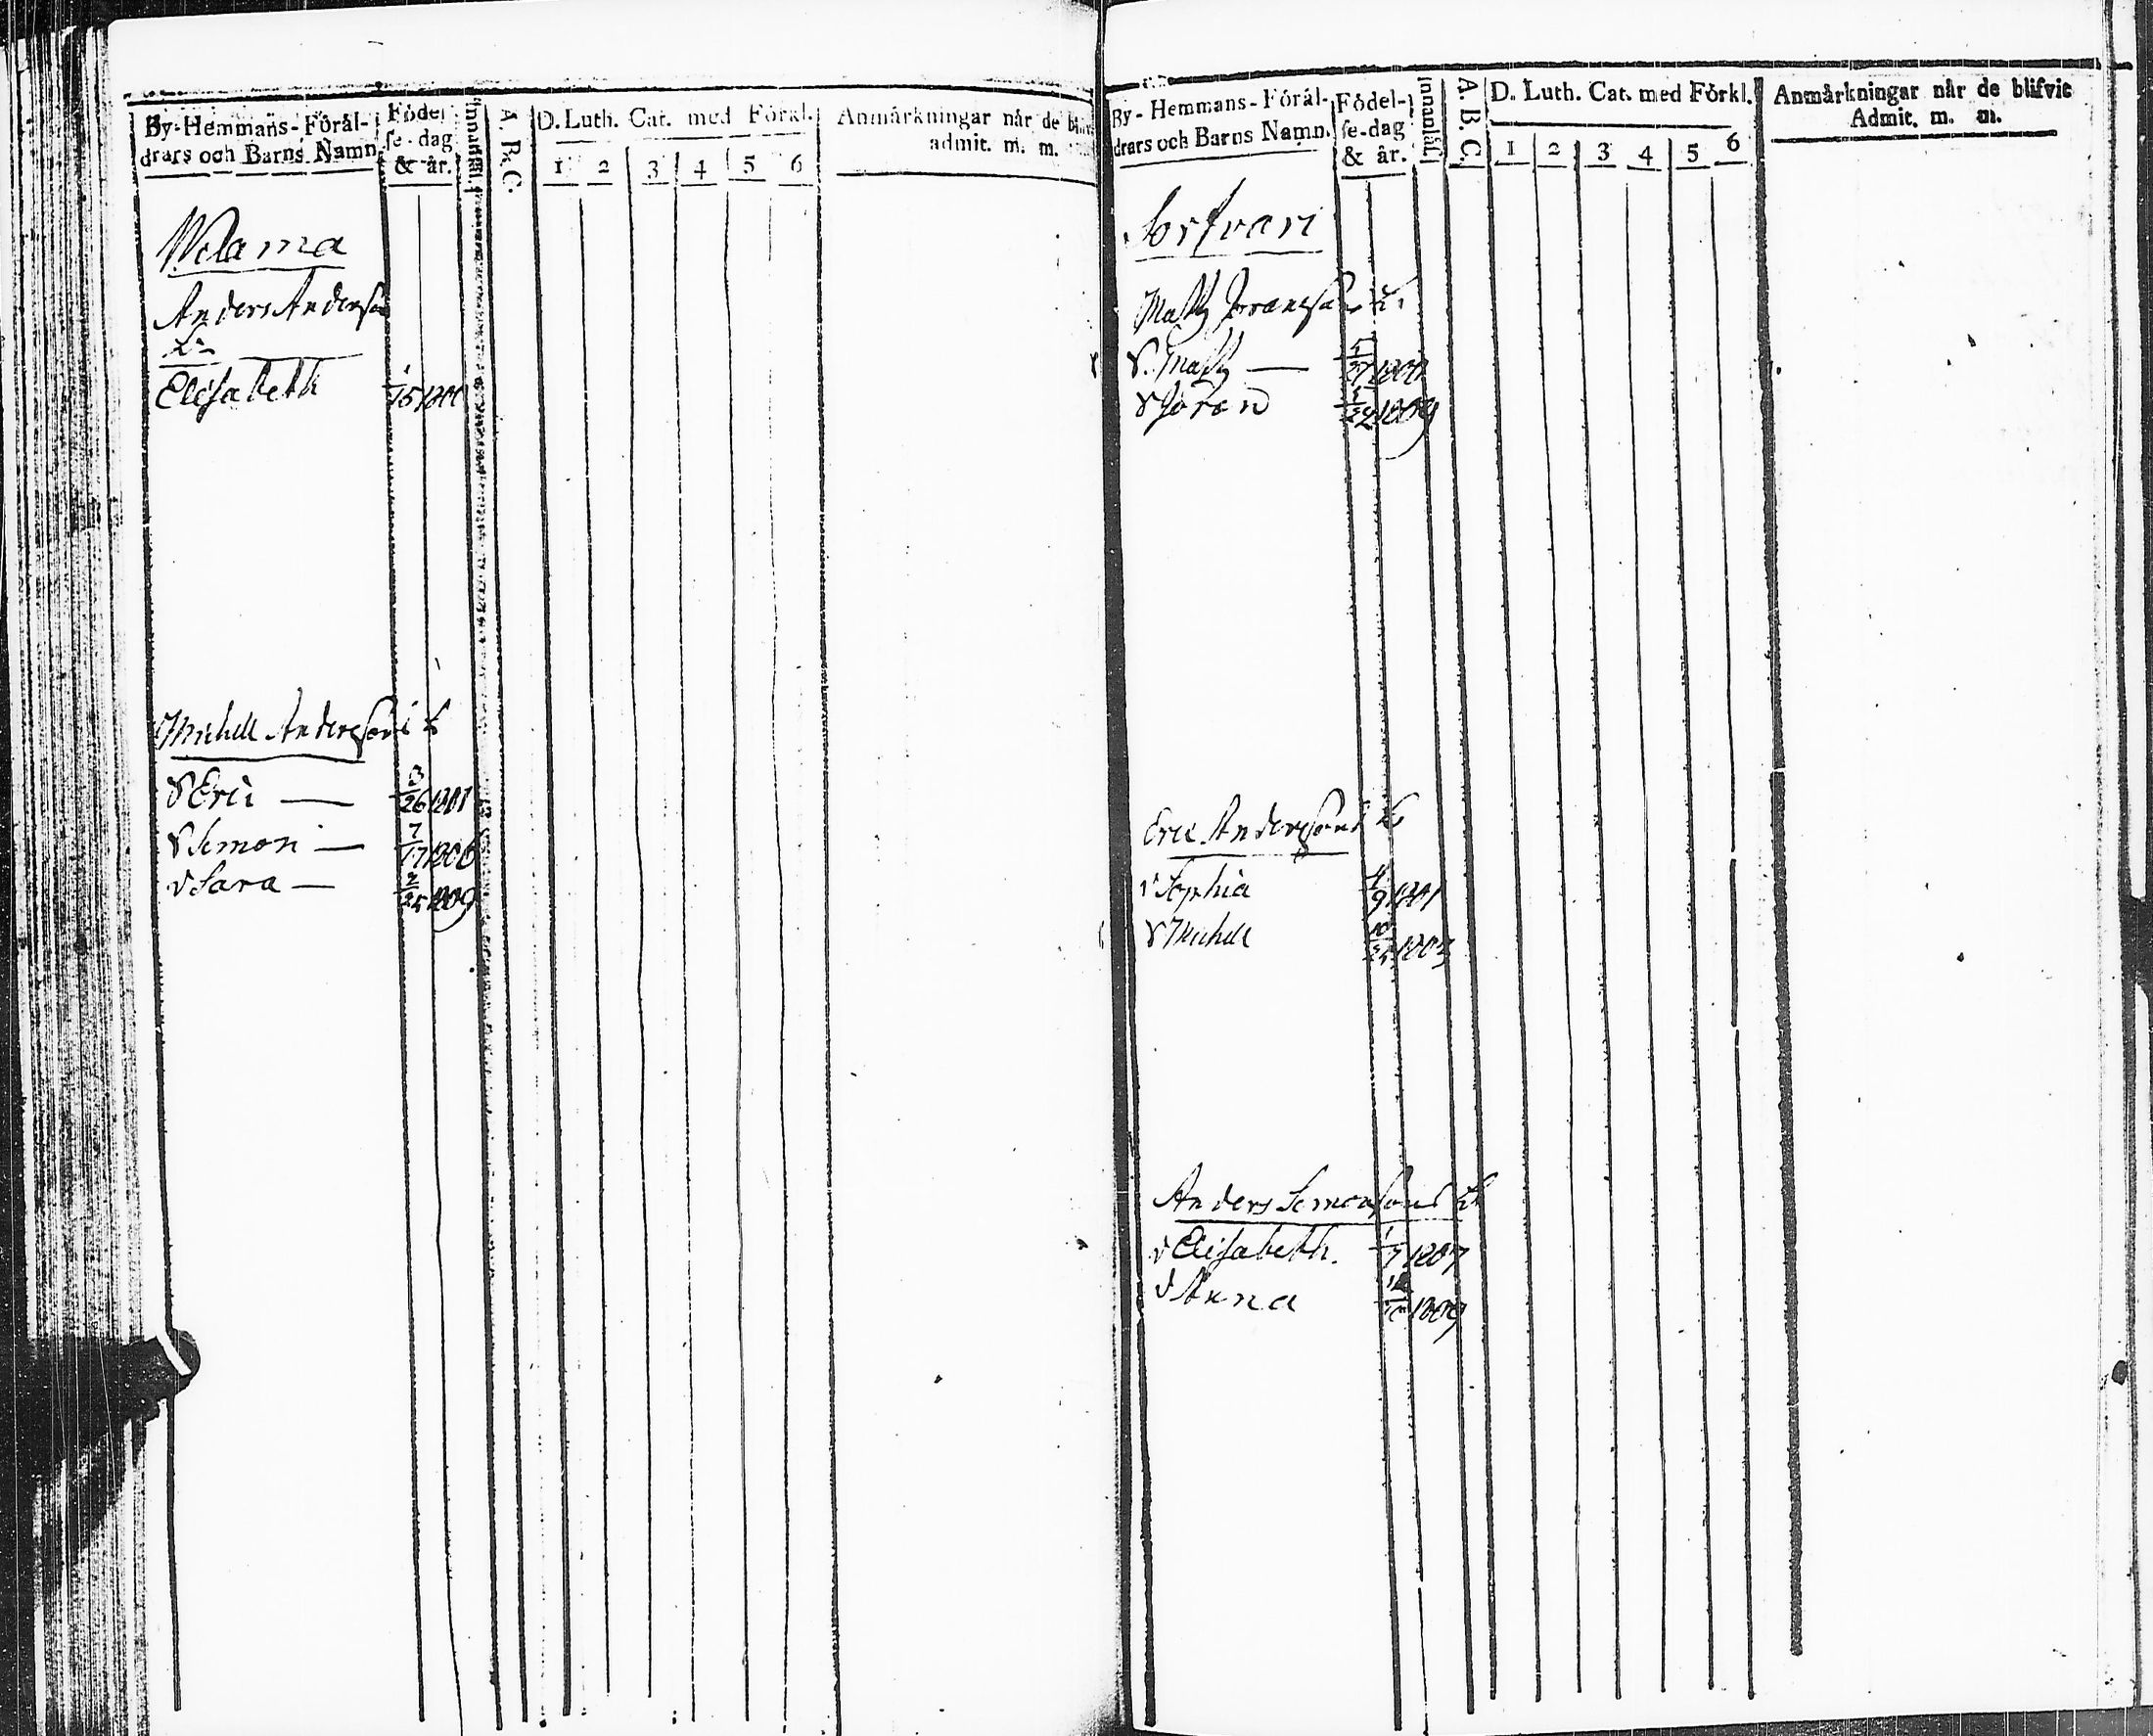 By-Hemmans-Föräl-
drars och Barns Namn.
Födel-
se-dag
& år.
Innanläs.
A. B. C.
D. Luth. Cat. med Förkl.
1 2 3 4 5 6
Anmärkningar når de blifvit
admit. m. m.
Anders Anderson
Elisabeth 1/15 1800
Michell Andersons b
v Eric — 3/26 1801
v Simon — 7/17 1806
v Sara — 2/25 1809
By-Hemmans-Föräl-
drars och Barns Namn.
Födel-
se-dag
& år.
Innanläs
A. B. C.
D. Luth. Cat. med Förkl.
1 2 3 4 5 6
Anmärkningar når de blifvit
Admit. m. m.
Sorfvari
Matts Joransson
v. Matts —
v Jöran 1809
Eric Andersons b
v Sophia 1801
v Michell 10/25 1803
Anders Simonsons
v Elisabeth. 1/7 1807
v Anna 1809